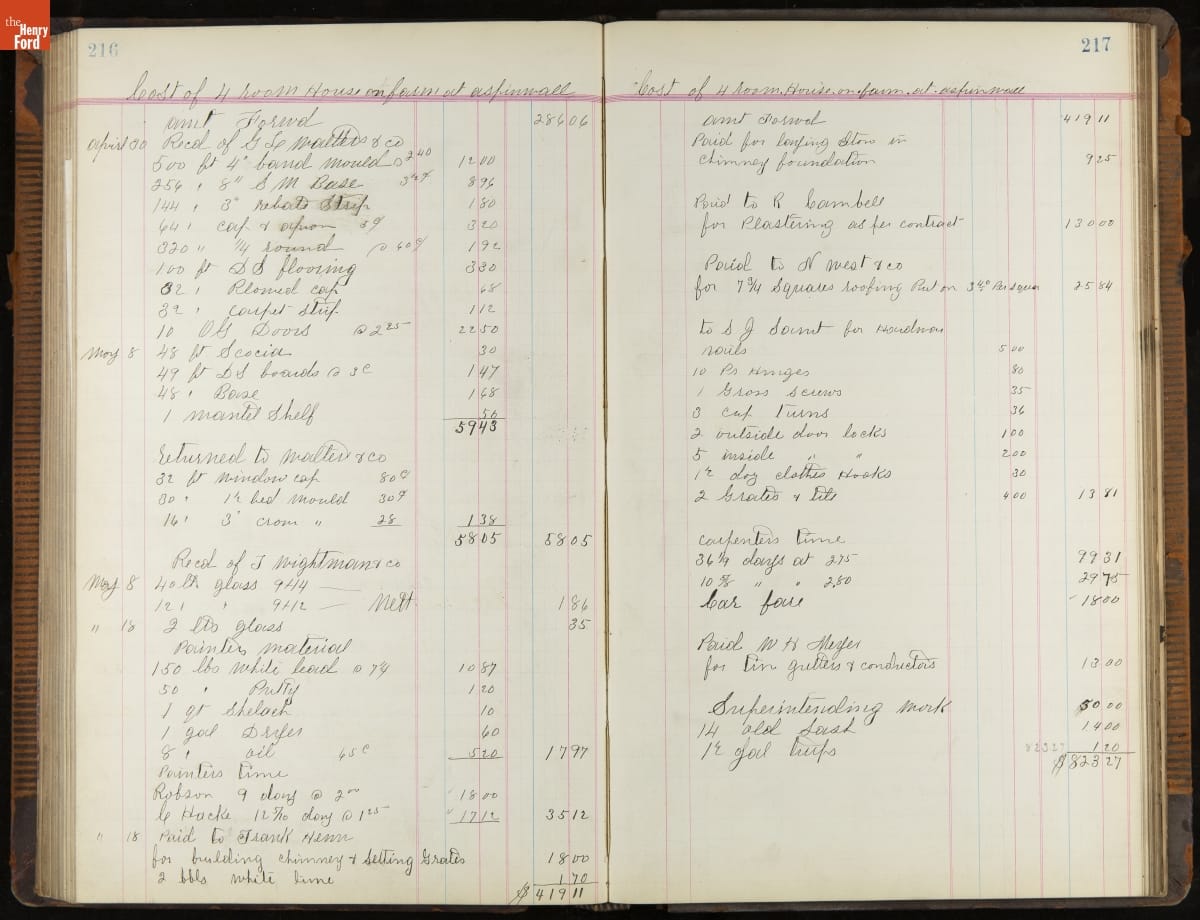 the Henry Ford
216
Cost of 4 room House on farm at aspinwall
amt Forwd 28606
april 30 Recd of G L Walters & co
500 ft 4" band mould @ 240 1200
256 " 8" S M Base 3½¢ 896
144 " 3" rebate Strip 180
64 " cap & apron 5¢ 320
320 " ¼ round @ 60¢ 192
100 ft D S flooring 330
32 " Plowed cap 68
32 " carpet strip 112
10 OG Doors @ 225 2250
May 8 48 ft Scocia 30
49 ft D S boards @ 3c 147
48 " Base 168
1 mantel Shelf 50
5943
Returned to Walter & co
32 ft window cap 80¢
30 " 1½ bed mould 30¢
14 " 3" crown " 28 138
5805 5805
Recd of T Wightman & co
May 8 40 lts glass 9+14
12 " " 9+12 Nett 186
" 18 2 lts glass 35
Painters material
150 lbs white lead @ 7¼ 1087
50 " Putty 120
1 qt Shelack 10
1 gal Dryer 60
8 " oil 65c 520 1797
Painters time
Robson 9 days @ 200 1800
C Hacke days @ 125 1712 3512
" 18 Paid to Frank Henn
for building chimney & Setting Grates 1800
2 bbls white lime 170
$41911
217
Cost of 4 room House on farm at aspinwall
amt Forwd 41911
Paid for laying Ston in
chimney foundation 925
Paid to R Cambell
for Plastering as per contract 13000
Paid to N West & co
for 7¾ Squares roofing Put on 340 Per Squar 2584
to S J Saint for Hardwar
nails 500
10 Ps Hinges 80
1 Gross Screws 35
3 cup turns 36
2 outside door locks 100
5 inside " " 200
1½ doz clothes Hooks 30
2 Grates & tile 400 1381
carpenters time
36¼ days at 275 9931
10⅝ " " 280 2975
Car fare 1800
Paid W H Meyer
for tin gutters & conductors 1300
Superintending work 5000
14 old Sash 1400
1½ gal turps 82327 120
$82327